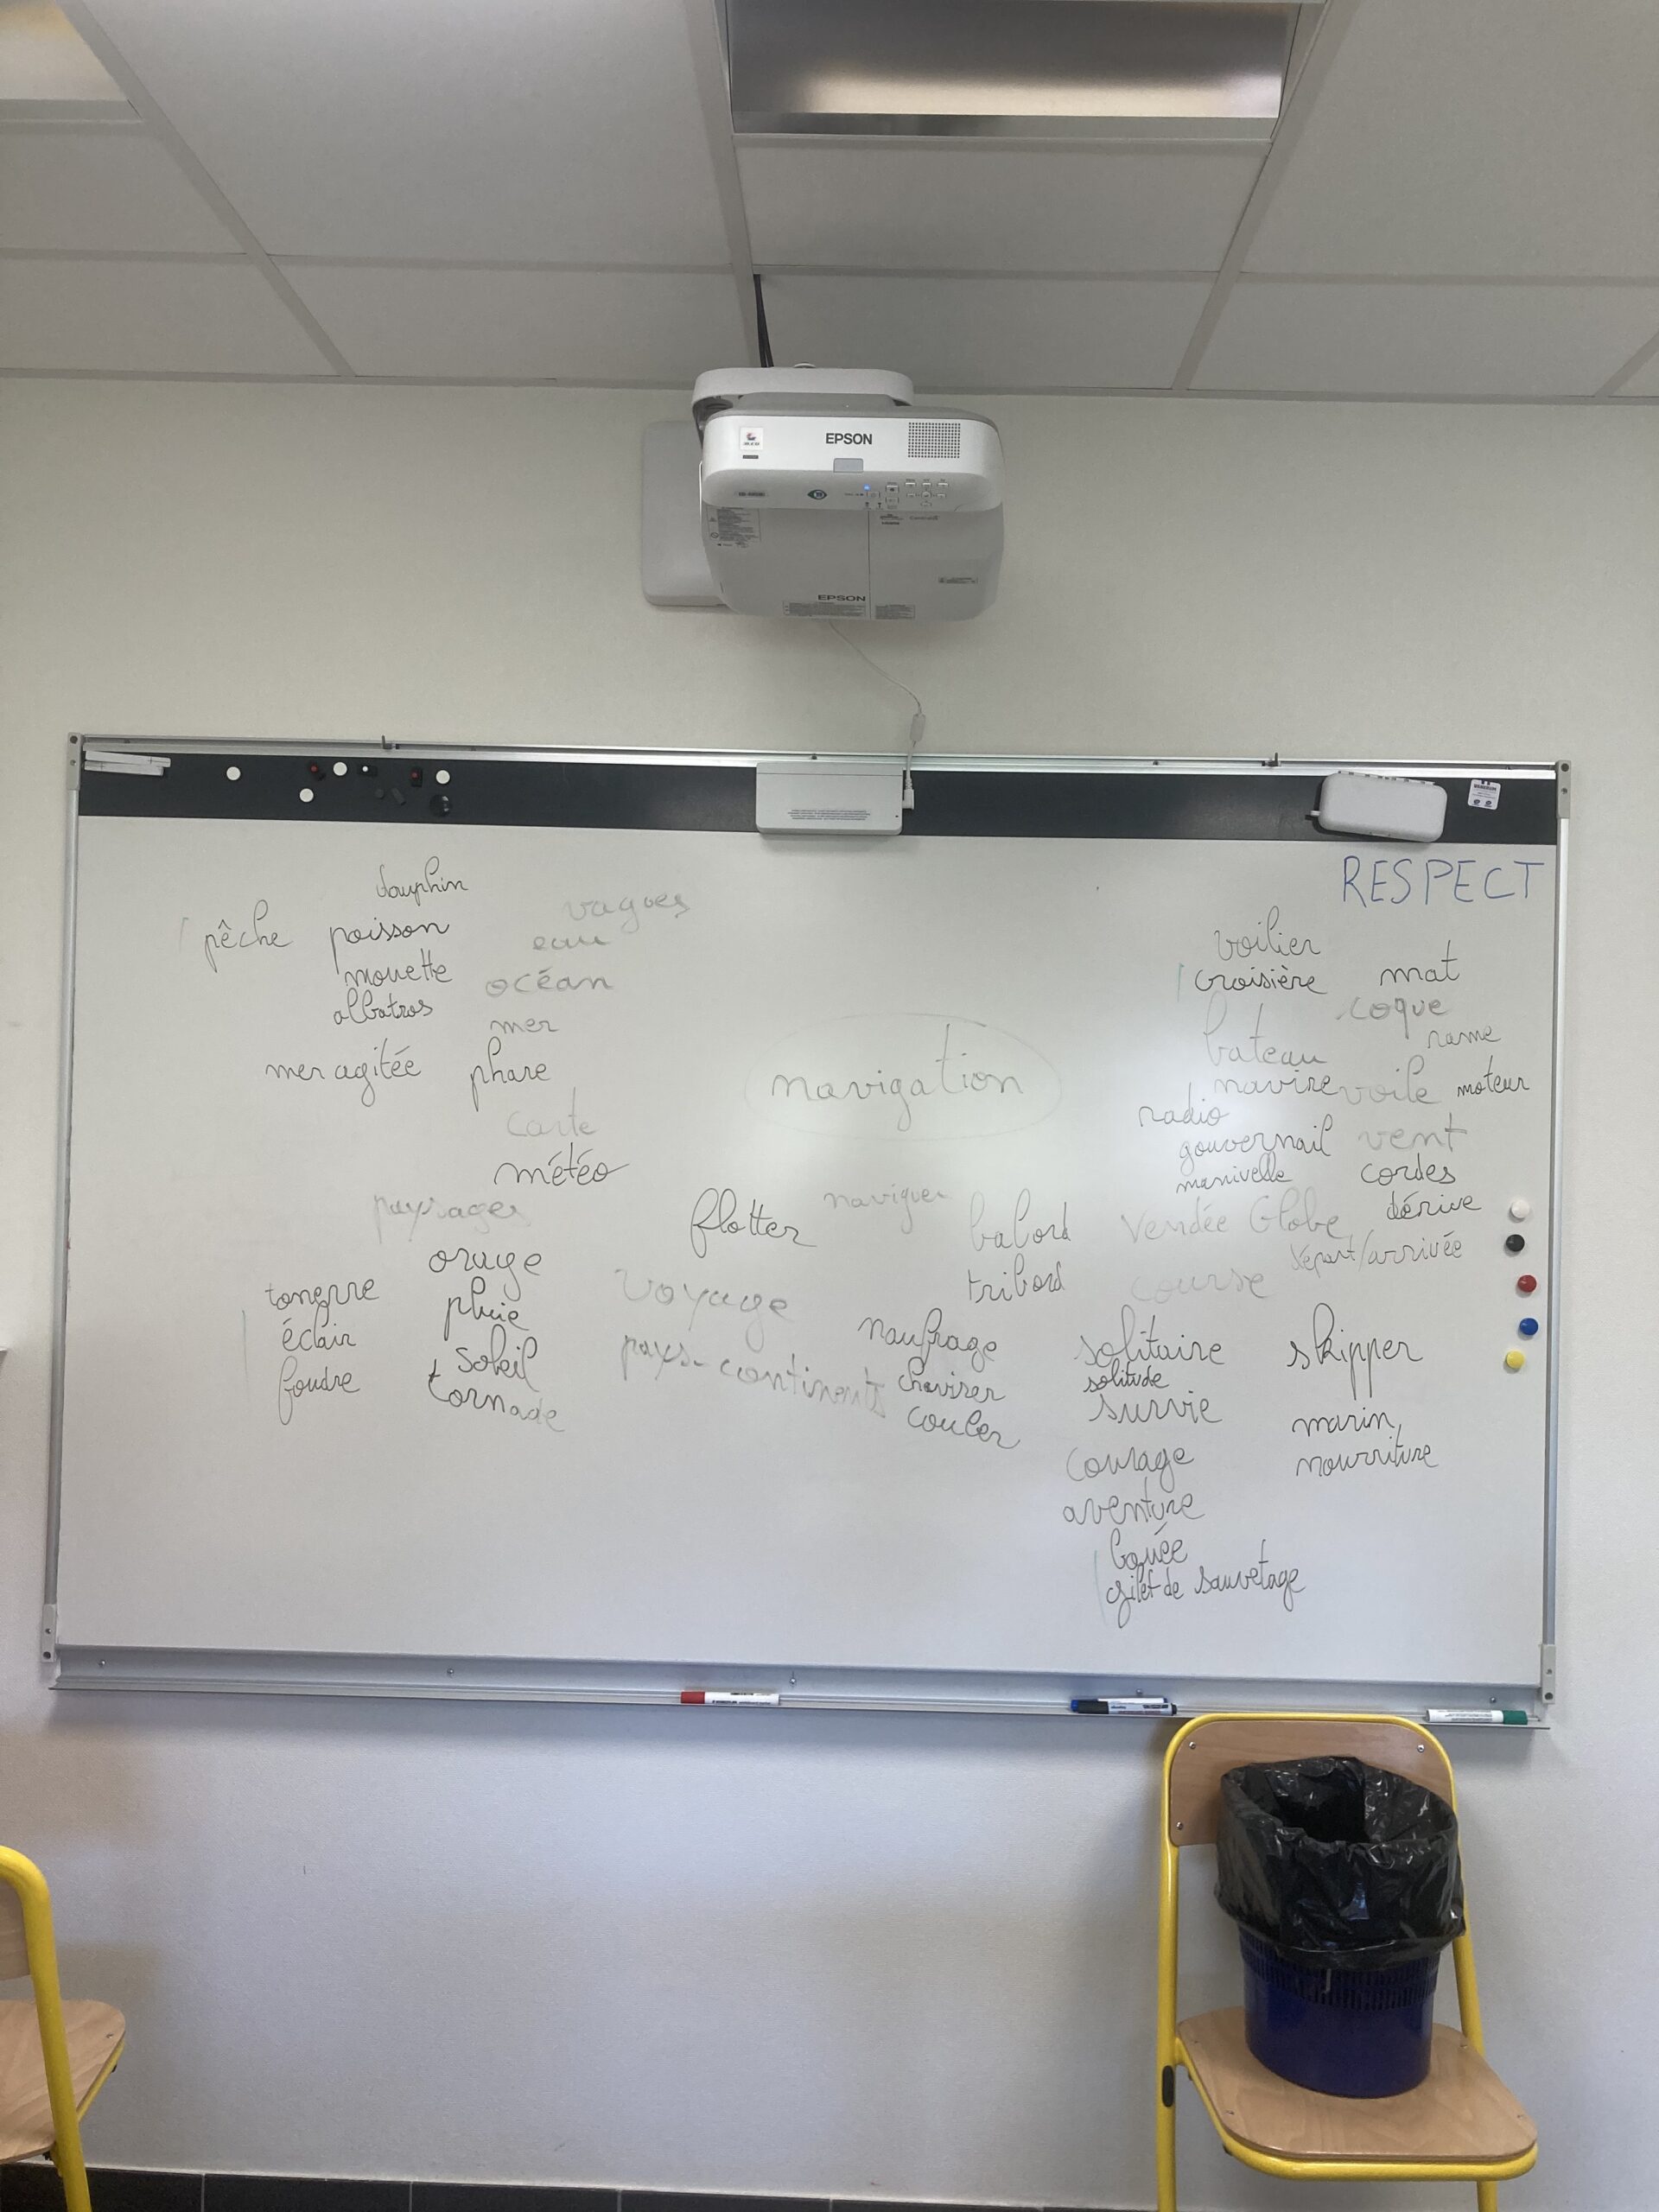 EPSON
EPSON
RESPECT
dauphin
pêche poisson
mouette
albatros
mer agitée
vagues
eau
océan
mer
phare
carte
météo
paysages
orage
pluie
soleil
tornade
tonerre
éclair
foudre
navigation
naviguer
flotter
voyage
pays - continents
babord
tribord
naufrage
chavirer
couler
voilier
croisière
bateau
navire
radio
gouvernail
manivelle
mat
coque
rame
voile moteur
vent
cordes
dérive
Vendée Globe
départ/arrivée
course
solitaire
solitude
survie
courage
aventure
bouée
gilet de sauvetage
skipper
marin
nourriture